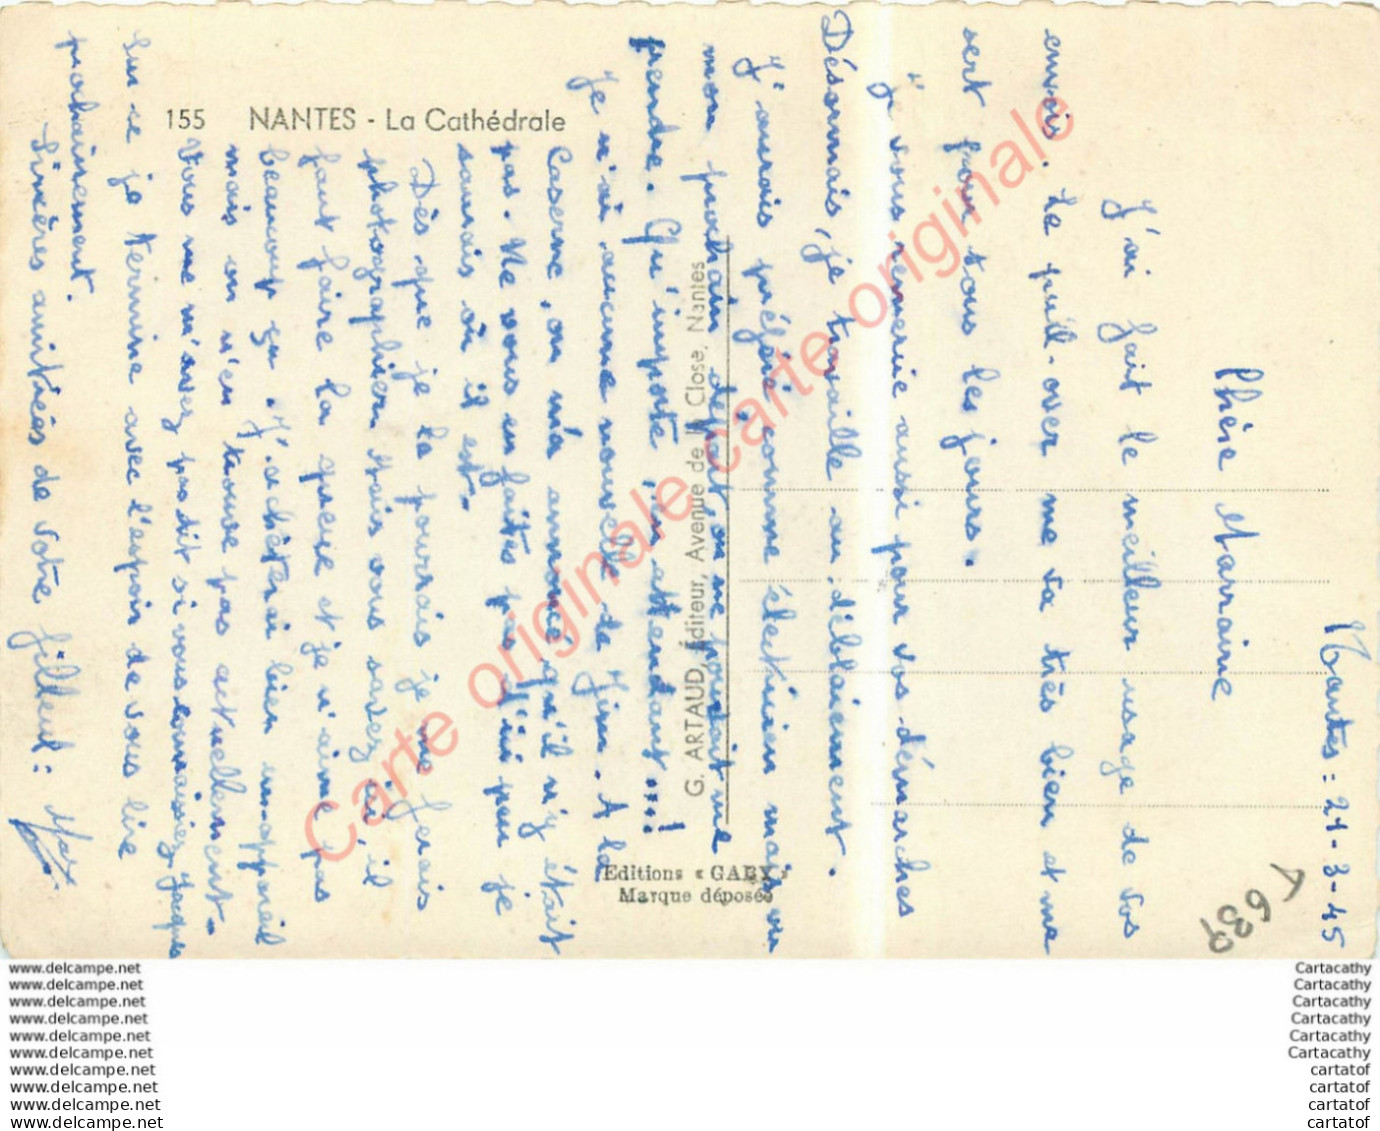 155 NANTES - La Cathédrale
Nantes : 21-3-45
Chère Marraine
J'ai fait le meilleur usage de vos
envois. Le pull-over me va très bien et me
sert pour tous les jours.
Je vous remercie aussi pour vos démarches
Désormais, je travaille au déblaiement.
J'aurais préféré comme électricien mais vu
mon prochain départ on ne pourrait me
prendre. Qu'importe, en attendant ...!
Je n'ai aucune nouvelle de Jim. A la
Caserne, on m'a annoncé qu'il n'y était
pas. Ne vous en faites pas d'ici peu je
saurais où il est.
Dès que je le pourrais je me ferais
photographier. Mais vous savez qu'il
faut faire la queue et je n'aime pas
beaucoup ça. J'achèterai bien un appareil
mais on n'en trouve pas actuellement.
Vous ne m'avez pas dit si vous connaissiez Jacques
Sur ce je termine avec l'espoir de vous lire
prochainement.
Sincères amitiés de votre filleul :
G. ARTAUD, Éditeur, Avenue de la Close, Nantes
Editions « GABY »
Marque déposée
639
Carte originale carte originale
www.delcampe.net
www.delcampe.net
www.delcampe.net
www.delcampe.net
www.delcampe.net
www.delcampe.net
www.delcampe.net
www.delcampe.net
www.delcampe.net
www.delcampe.net
Cartacathy
Cartacathy
Cartacathy
Cartacathy
Cartacathy
Cartacathy
cartatof
cartatof
cartatof
cartatof